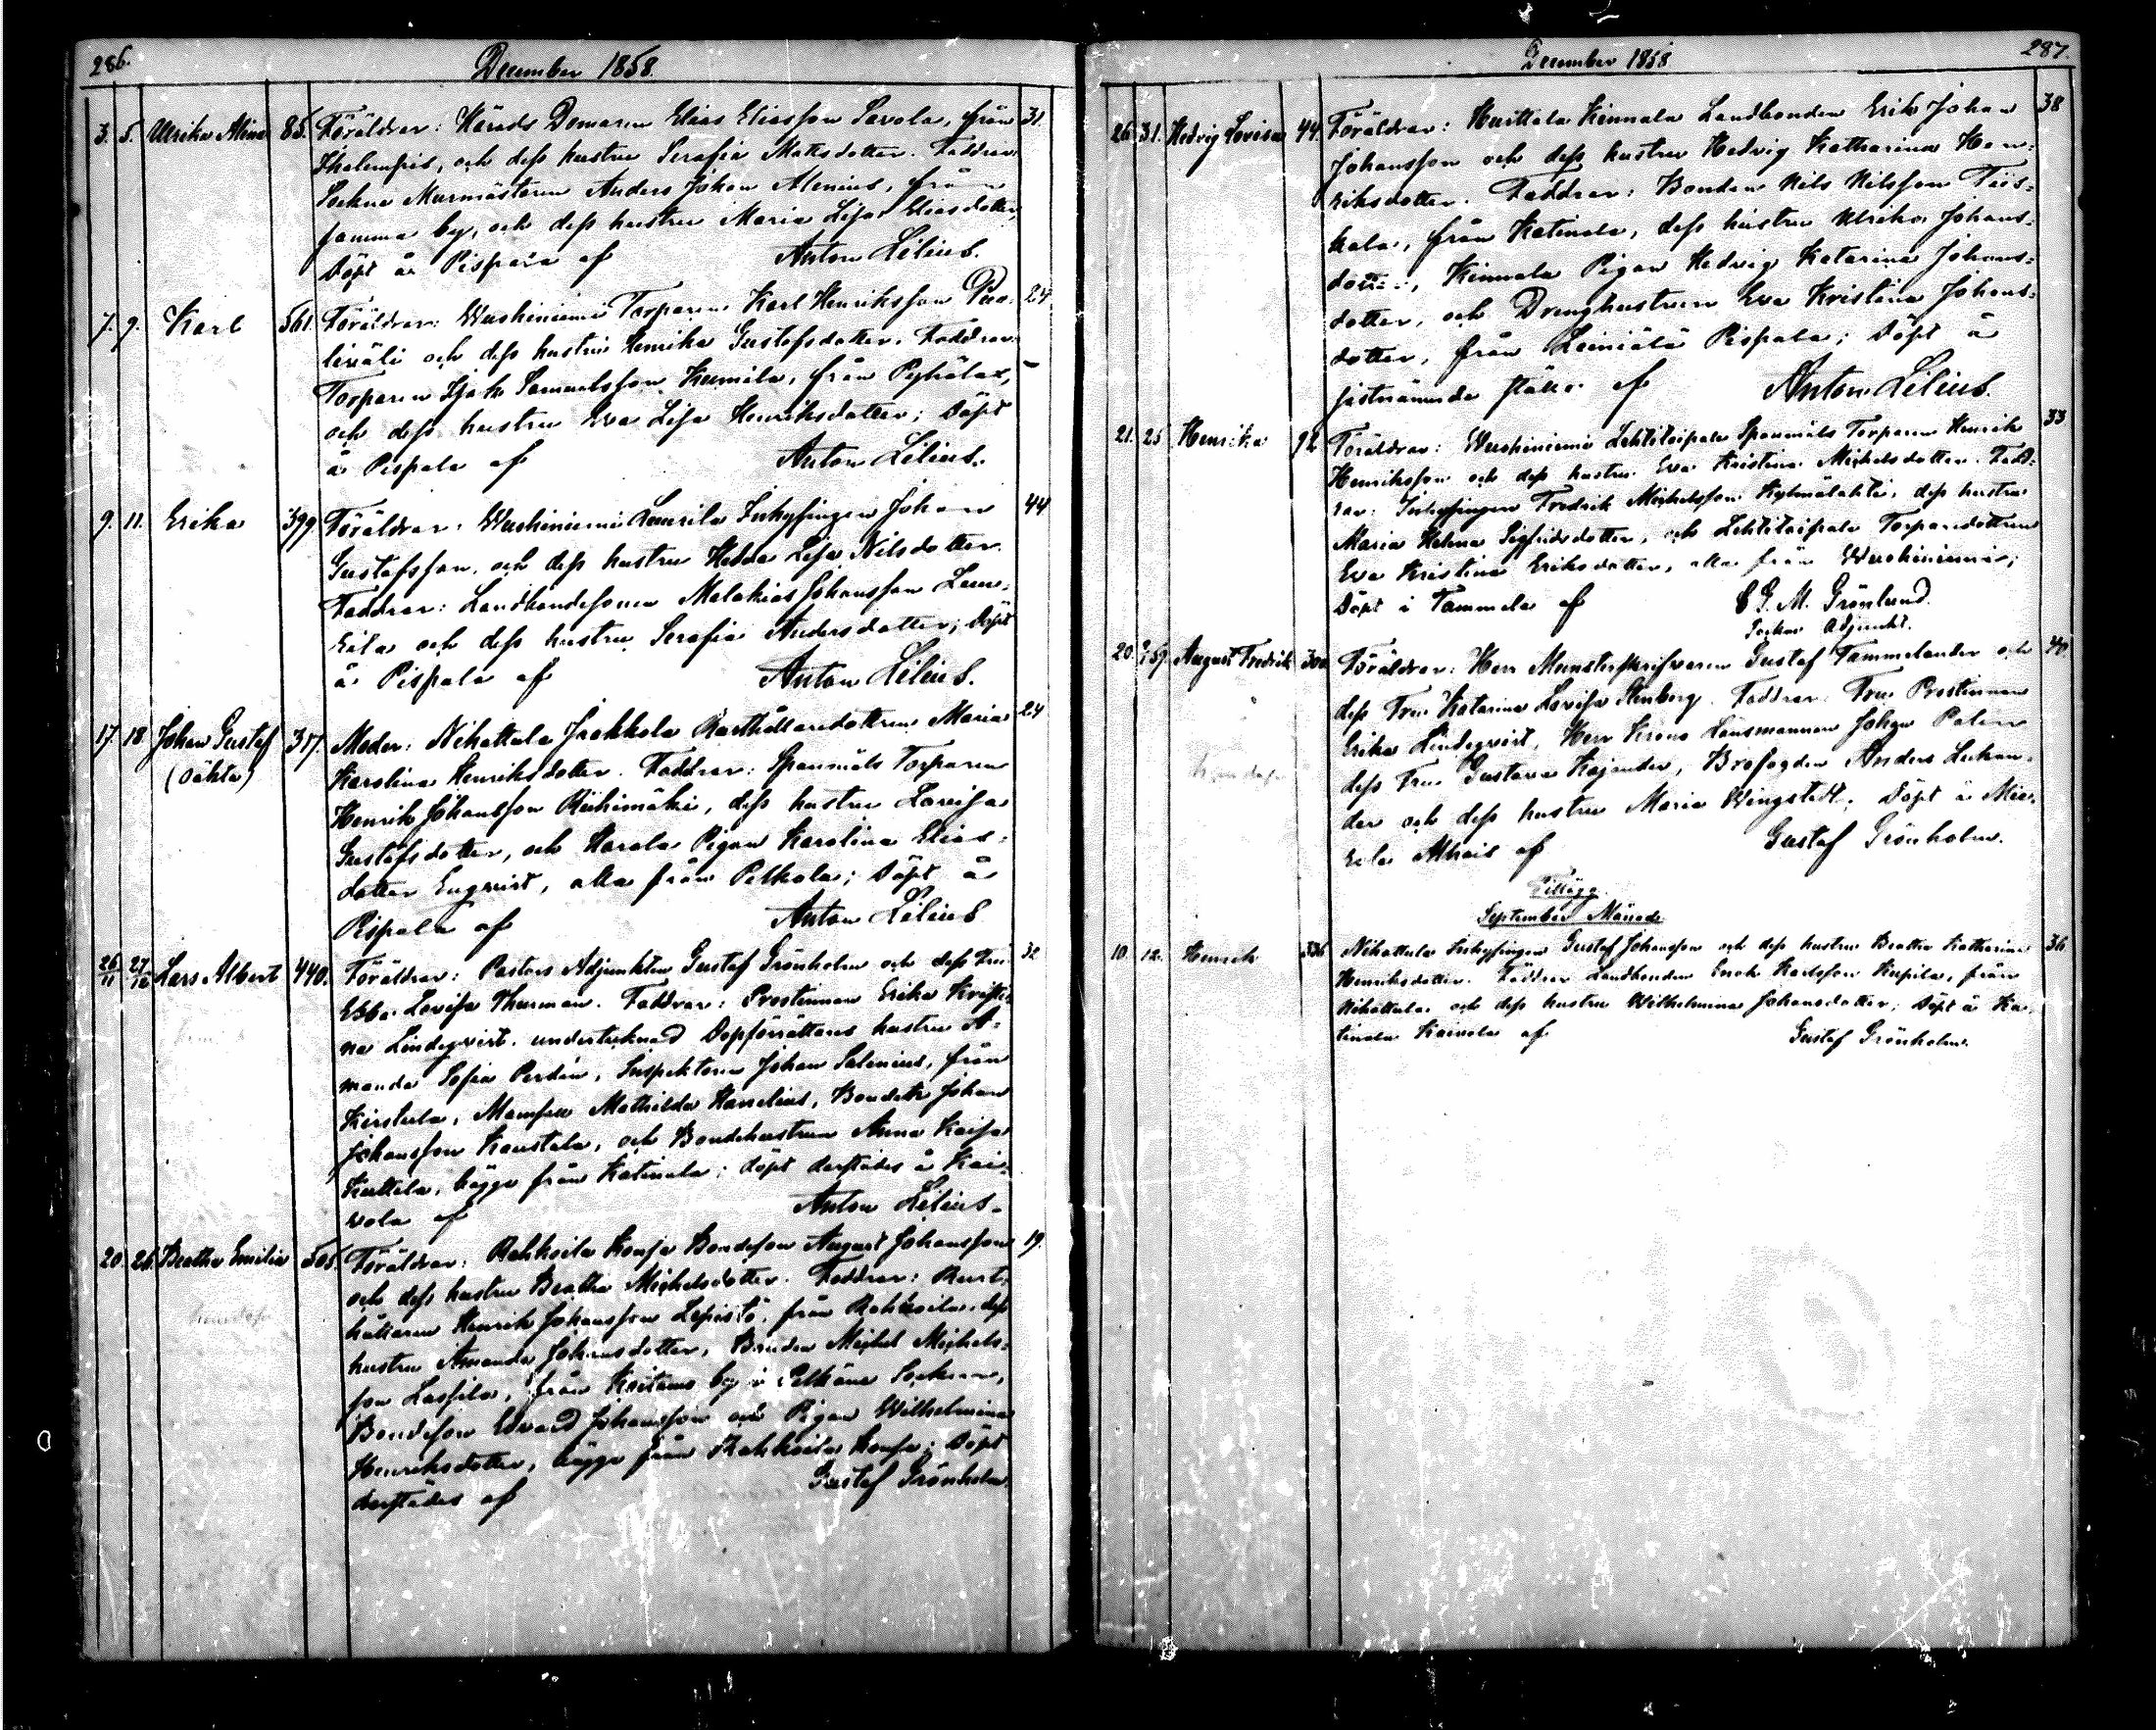 286.
December 1858.
3. 5. Ulrika Alina 85. Föräldrar: Härads Domaren Elias Eliasson Savola, från 31.
Ihalempis, och dess hustru Serafia Mattsdotter. Faddrar:
Sockne Murmästaren Anders Johan Alenius, från
samma by, och dess hustru Maria Lisa Eliasdotter,
Döpt å Pispala af Anton Lilius.
7. 9. Karl 561. Föräldrar: Wuohiniemi Torparen Karl Henriksson Puo- 24
liväli och dess hustru Henrika Gustafsdotter. Faddrar:
Torparen Isak Samuelsson Kumila, från Pyhälax,
och dess hustru Eva Lisa Henriksdotter; Döpt
å Pispala af Anton Lilius.
9. 11. Erika 399. Föräldrar: Wuohiniemi Laurila Inhysingen Johan 44
Gustafsson, och dess hustru Hedda Lisa Nilsdotter.
Faddrar: Landbondesonen Malakias Johansson Lau-
rila och dess hustru Serafia Andersdotter; Döpt
å Pispala af Anton Lilius.
17. 18. Johan Gustaf 317. Moder: Nihattula Jaakkola Rusthållaredottren Maria 24
(Oäkta) Karolina Henriksdotter. Faddrar: Spanmåls Torparen
Henrik Johansson Riihimäki, dess hustru Lovisa
Gustafsdotter, och Harala Pigan Karolina Elias-
dotter Enqvist, alla från Pelkola; Döpt å
Pispala af Anton Lilius
26/11 27/12 Lars Albert 440. Föräldrar: Pastors Adjunkten Gustaf Grönholm och dess Fru 32
Ebba Lovisa Thurman. Faddrar: Prostinnan Erika Kristi-
na Lindeqvist. undertecknad Dopförrättares hustru A-
manda Sofia Perdén, Inspektoren Johan Salenius, från
Kirstula, Mamsell Mathilda Hanelius, Bonden Johan
Johansson Kaustala, och Bondehustrun Anna Kaisa
Kuttila, bägge från Katinala; döpt derstädes å Kai-
vola af Anton Lilius.
20. 26. Beatha Emilia 505. Föräldrar: Rahkoila Konsa Bondeson August Johansson 19.
och dess hustru Beatha Michelsdotter. Faddrar: Rust-
hållaren Henrik Johansson Lepistö, från Rahkoila, dess
hustru Amanda Johansdotter, Bonden Michel Michels-
son Lassila, från Kaitamo by i Pelkäne Socken,
Bondeson Edvard Johansson och Pigan Wilhelmina
Henriksdotter, bägge från Rahkoila Konsa; Döpt
derstädes af Gustaf Grönholm.
December 1858 287.
26. 31. Hedvig Lovisa 44. Föräldrar: Hurttala Kinnala Landbonden Erik Johan 38
Johansson och dess hustru Hedvig Katharina Hen-
riksdotter. Faddrar: Bonden Nils Nilsson Tös-
kala, från Katinala, dess hustru Ulrika Johans-
dotter, Kinnala Pigan Hedvig Katarina Johans-
dotter, och Drenghustrun Eva Kristina Johans-
dotter, från Leiniälä Pispala; Döpt å
sistnämnda ställe af Anton Lilius.
21. 25 Henrika 92 Föräldrar: Wuohiniemi Lehtitaipale Spanmåls Torparen Henrik 33
Henriksson och dess hustru Eva Kristina Michelsdotter. Fadd-
rar: Inhysingen Fredrik Michelsson Kylmälahti, dess hustru
Maria Helena Sigfridsdotter, och Lehtitaipale Torparedottren
Eva Kristina Eriksdotter, alla från Wuohiniemi;
Döpt i Tammela af C G. M. Grönlund.
Sockne Adjunkt.
20. August Fredrik 300 Föräldrar: Herr Munsterskrifvaren Gustaf Tammelander och 40
dess Fru Katarina Lovisa Stenberg. Faddrar: Fru Prostinnan
Erika Lindeqvist, Herr Krono Länsmannen Johan Palin
dess Fru Gustava Kajander, Brofogden Anders Lukan-
der och dess hustru Maria Wingstedt; Döpt å Mie-
rola Alhais af Gustaf Grönholm.
Tillägg.
September Månad
10. 12. Henrik 336 Nihattula Inhysingen Gustaf Johansson och dess hustru Beatha Katharina 36
Henriksdotter. Faddrar Landbonden Enok Karlsson Kupila, från
Nihattula och dess hustru Wilhelmina Johansdotter; Döpt å Ka-
tinala Kaivola af Gustaf Grönholm.